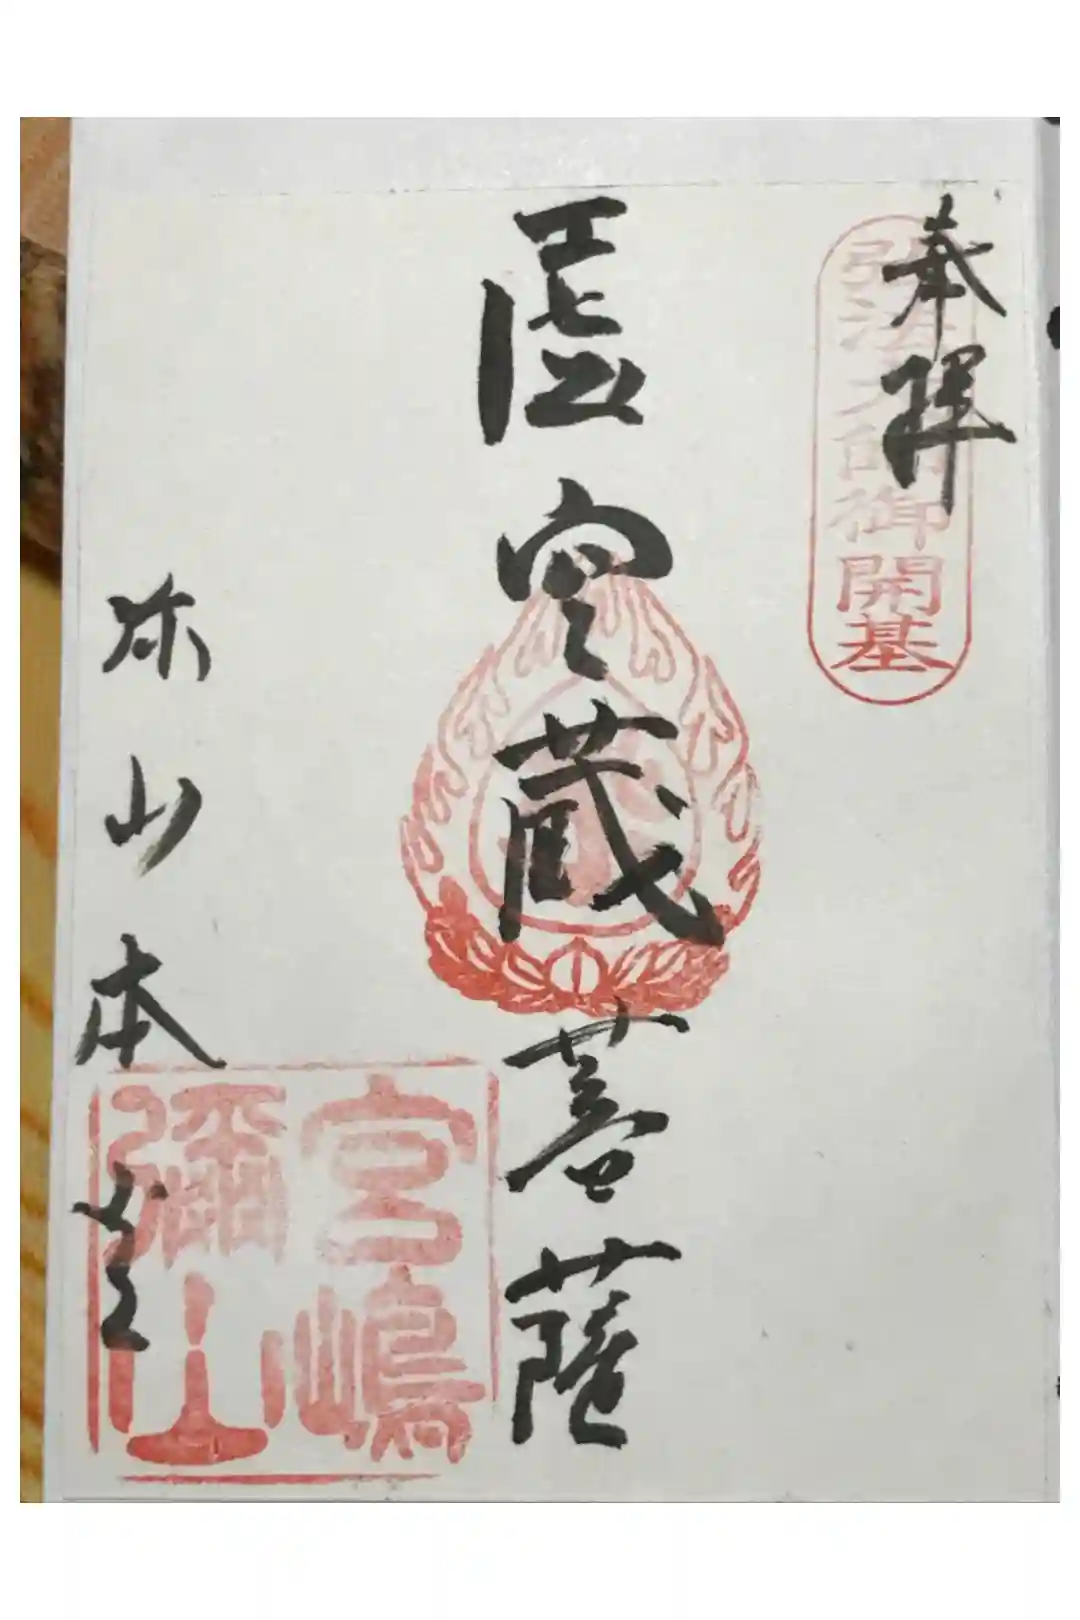 奉拝
弘法大師御開基
虚空蔵菩薩
弥山本堂
宮嶋
彌山